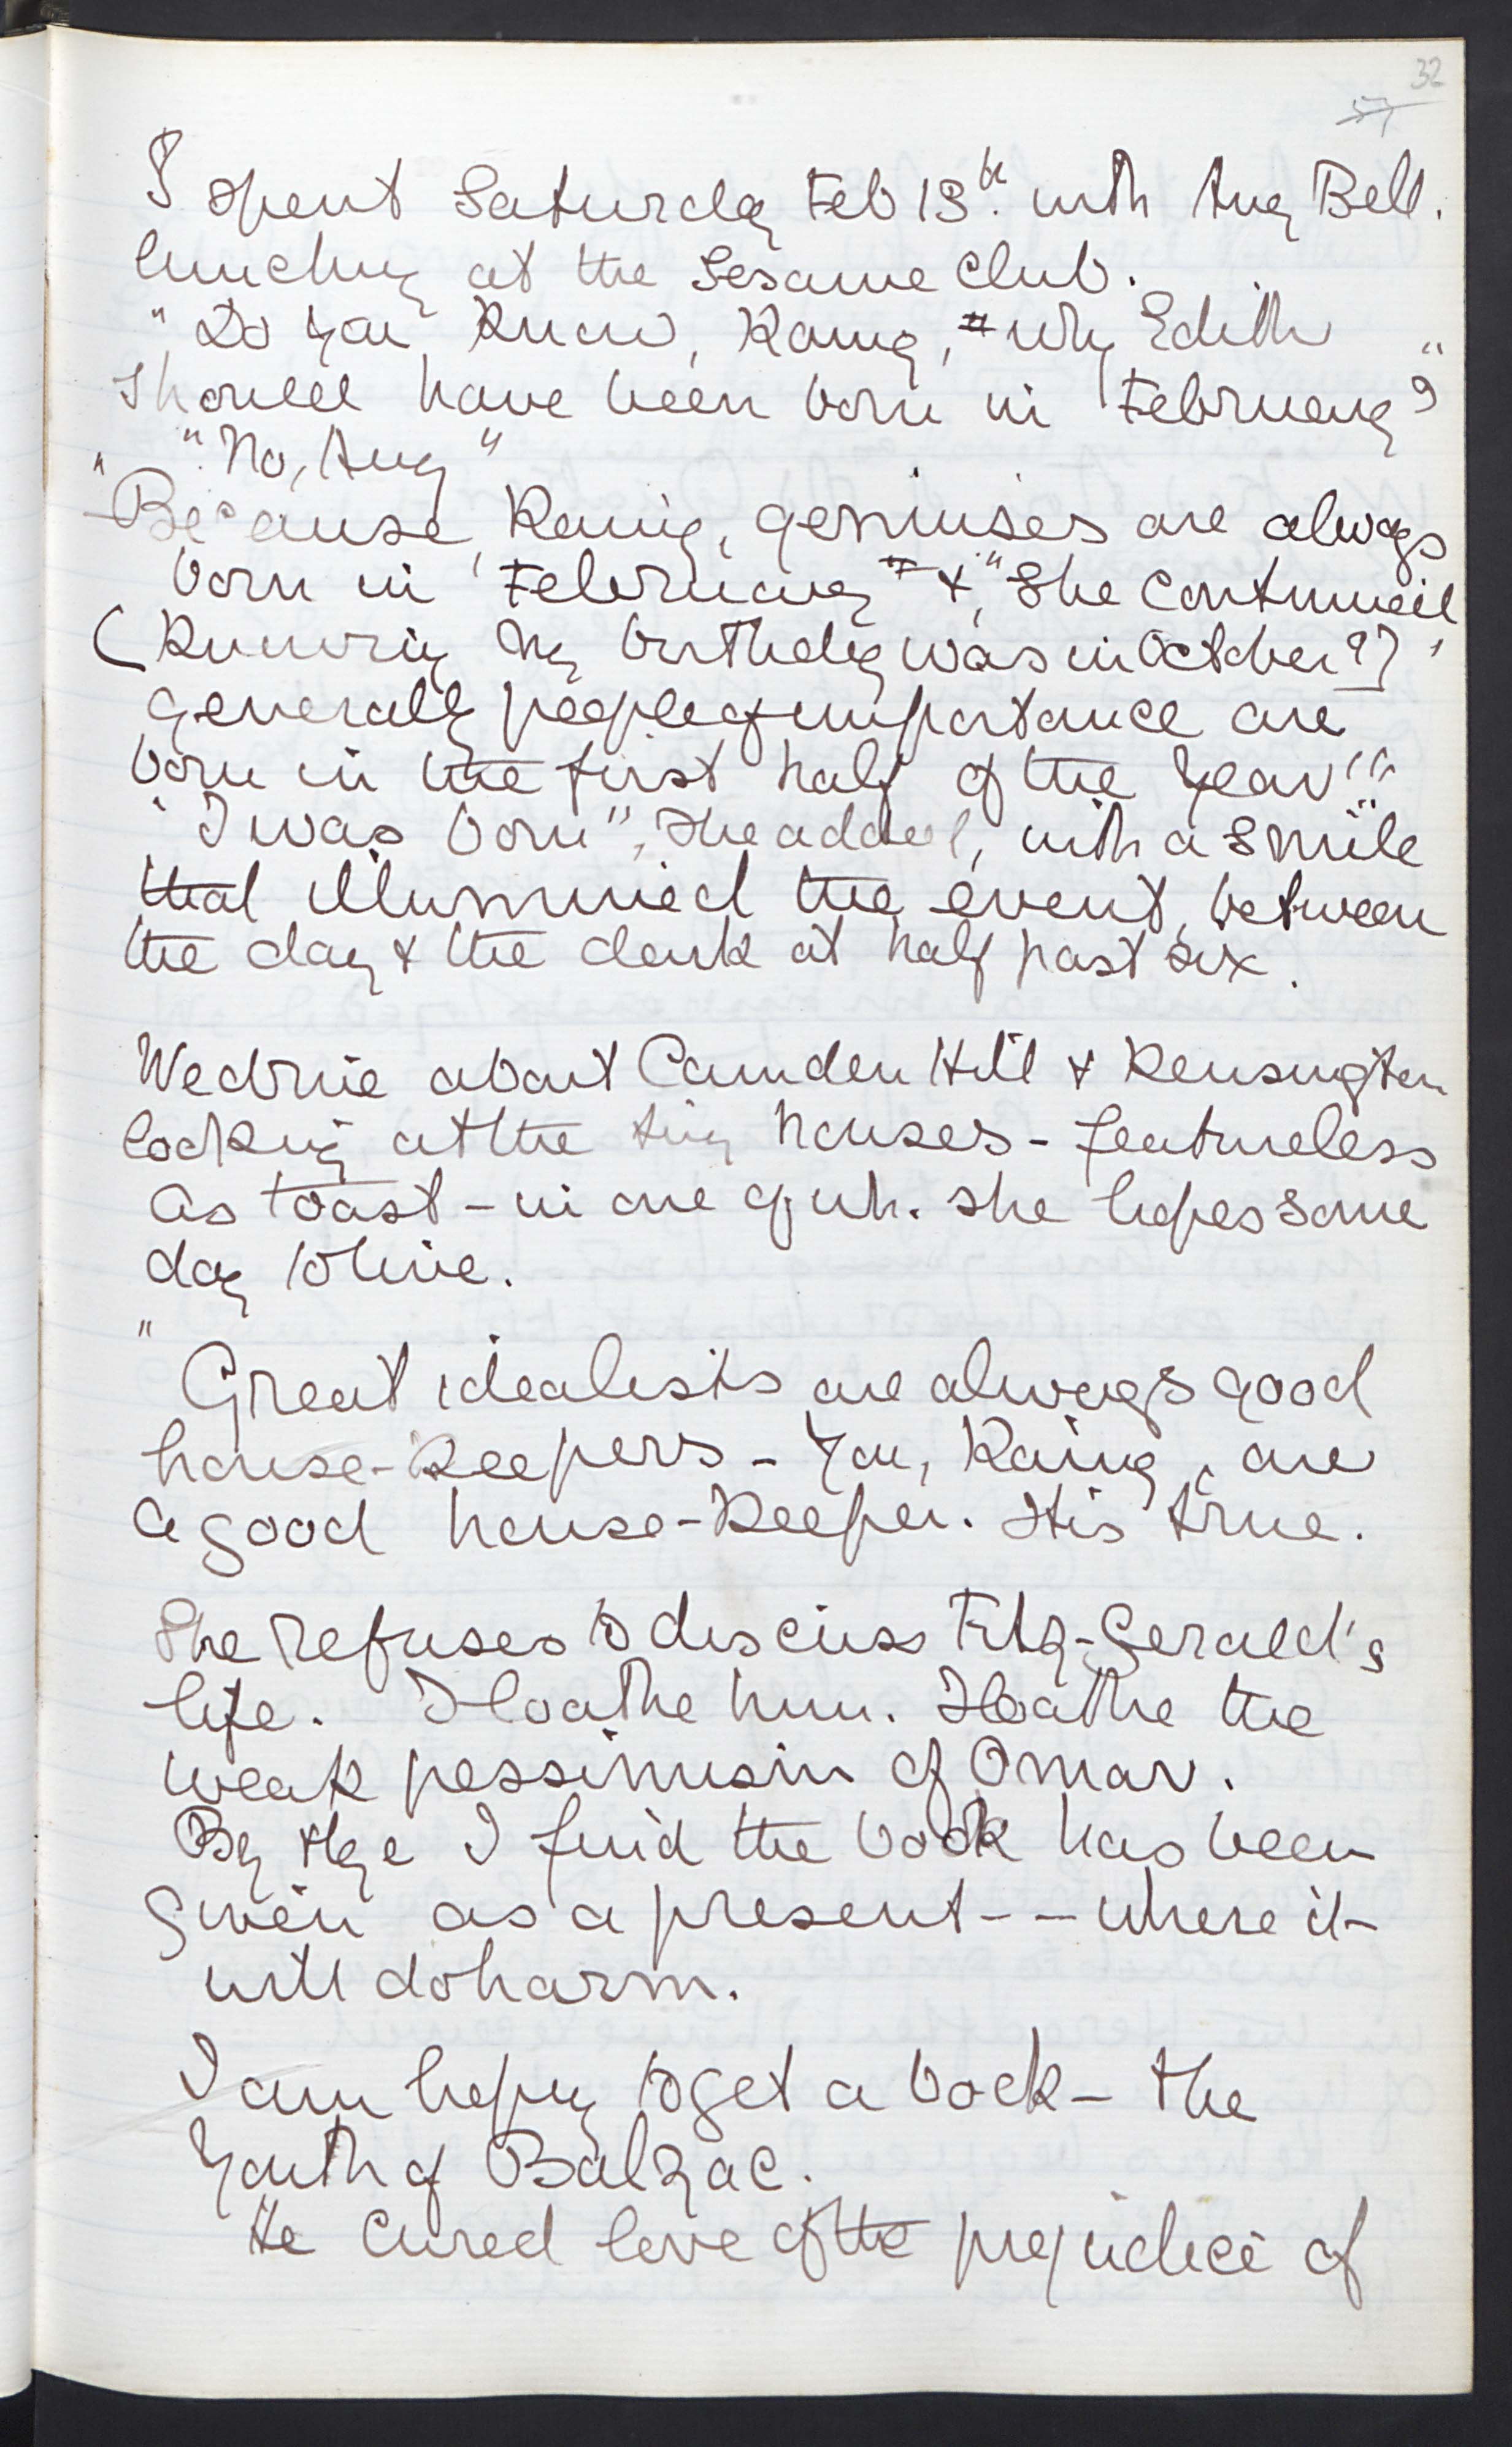 32
57
I spent Saturday Feb 13th. with Amy Bell.
lunching at the Sesame Club.
"Do you know, Kaing, why Edith
should have been born in February?"
"No, Amy"
"Because, Kaing, geniuses are always
born in February" & "she continued
(knowing my birthday was in October?)
generally people of importance are
born in the first half of the year"
"I was born", she added, with a smile
that illumined the event, between
the day & the dark at half past six.
We drive about Camden Hill & Kensington
looking at the tiny houses - featureless
as toast - in one of wh. she hopes some
day to live.
"Great idealists are always good
house-keepers - You, Kaing, are
a good house-keeper. It is true.
She refuses to discuss Fitz-Gerald's
life. I loathe him. I loathe the
weak pessimism of Omar.
By the bye I find the book has been
given as a present - - where it
will do harm.
I am hoping to get a book - the
Youth of Balzac.
He cured love of the prejudice of